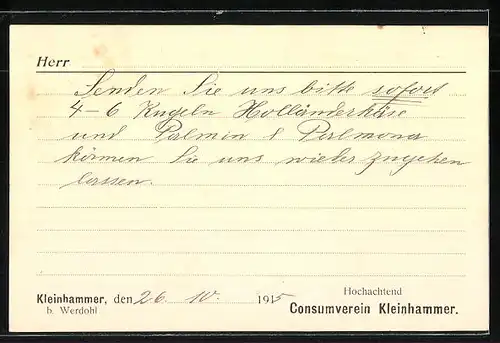 Herr
Senden Sie uns bitte sofort
4-6 Kugeln Holländerkäse
und Palmin & Palmona
können Sie uns wieder zugehen
lassen.
Hochachtend
Kleinhammer, den 26. 10. 1915
b. Werdohl
Consumverein Kleinhammer.